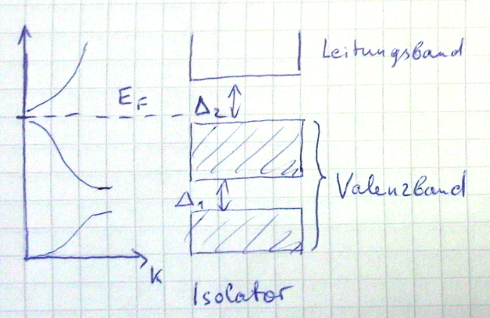 Leitungsband
E_F
Δ₂
Valenzband
Δ₁
K
Isolator